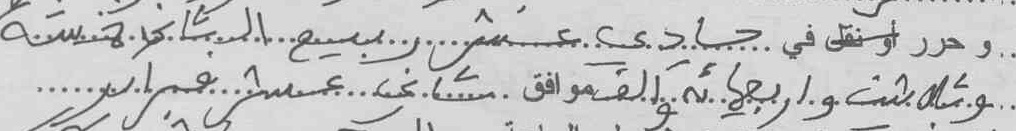 وحرر او نقل في حادي عشر ربيع الثاني خمسة
وثلاثين واربعمائة والف موافق ثاني عشر فبراير